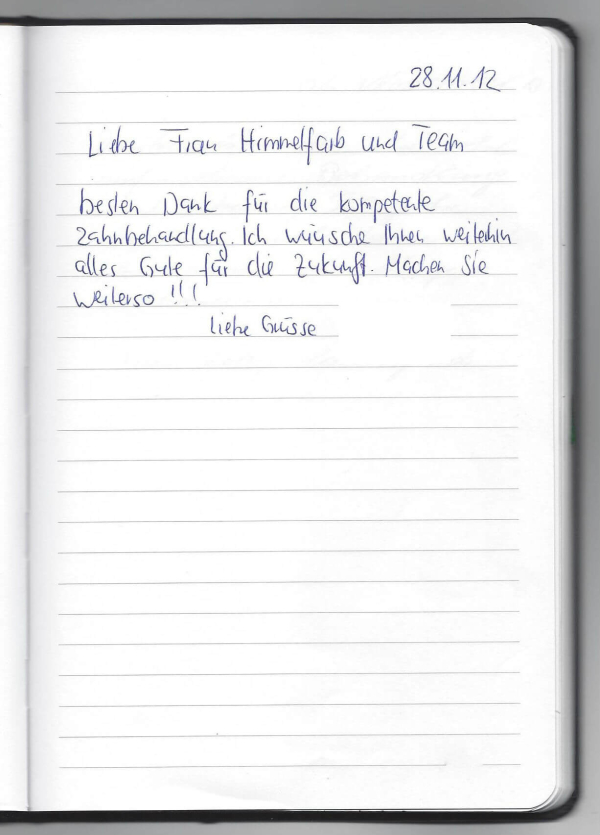 28.11.12
Liebe Frau Himmelfarb und Team
besten Dank für die kompetente
Zahnbehandlung. Ich wünsche Ihnen weiterhin
alles Gute für die Zukunft. Machen Sie
weiterso !!!
Liebe Grüsse